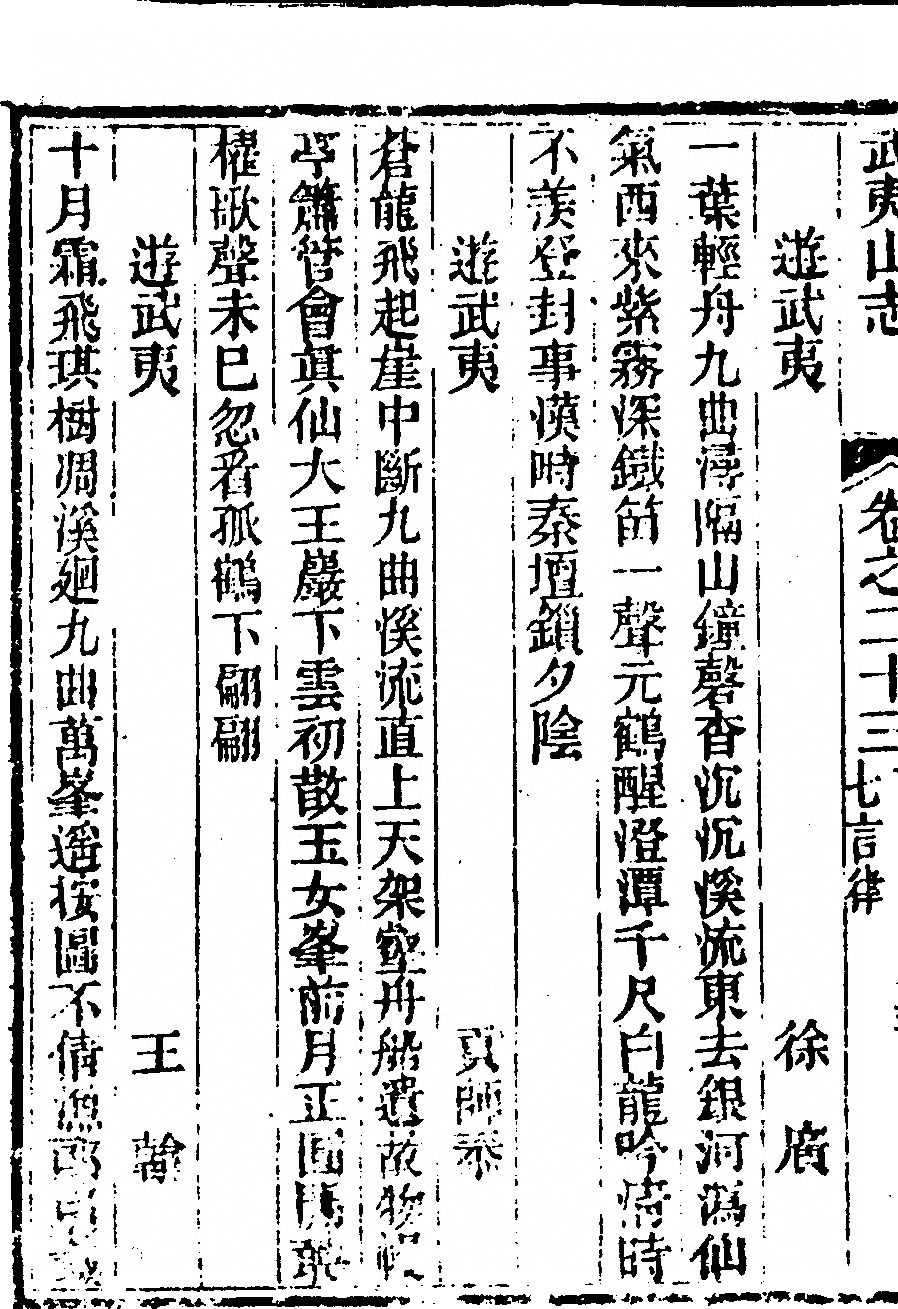 武夷山志 卷之二十三 七言律
遊武夷 徐
一葉輕舟九曲潯隔山鐘磬杳沉沉溪流東去銀河瀉仙
氣西來紫霧深鐵笛一聲元鶴醒澄潭千尺白龍吟時
不羨登封事漢時秦壇鎖夕陰
遊武夷 貢師泰
蒼龍飛起崖中斷九曲溪流直上天架壑舟船遺故物幔
亭簫管會眞仙大王巖下雲初散玉女峯前月正圓
櫂歌聲未已忽看孤鶴下翩翩
遊武夷 王翰
十月霜飛琪樹凋溪廻九曲萬峯遥按圖不倩漁郎